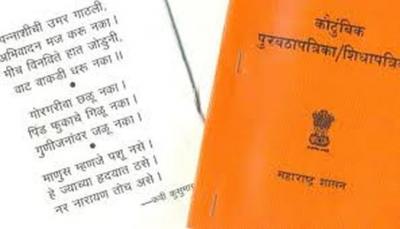 पन्नाशीची उमर गाठली,
अभिवादन मज करू नका।
मीच विनविते हात जोडुनी,
वाट वाकडी धरू नका॥
गोरगरीबा छळू नका।
पिंड फुकाचे गिळू नका।
गुणीजनांवर जळू नका।
माणूस म्हणजे पशू नसे।
हे ज्याच्या हृदयात ठसे।
नर नारायण तोच असे।
—कवी कुसुमा
कौटुंबिक
पुरवठापत्रिका/शिधापत्रि
महाराष्ट्र शासन